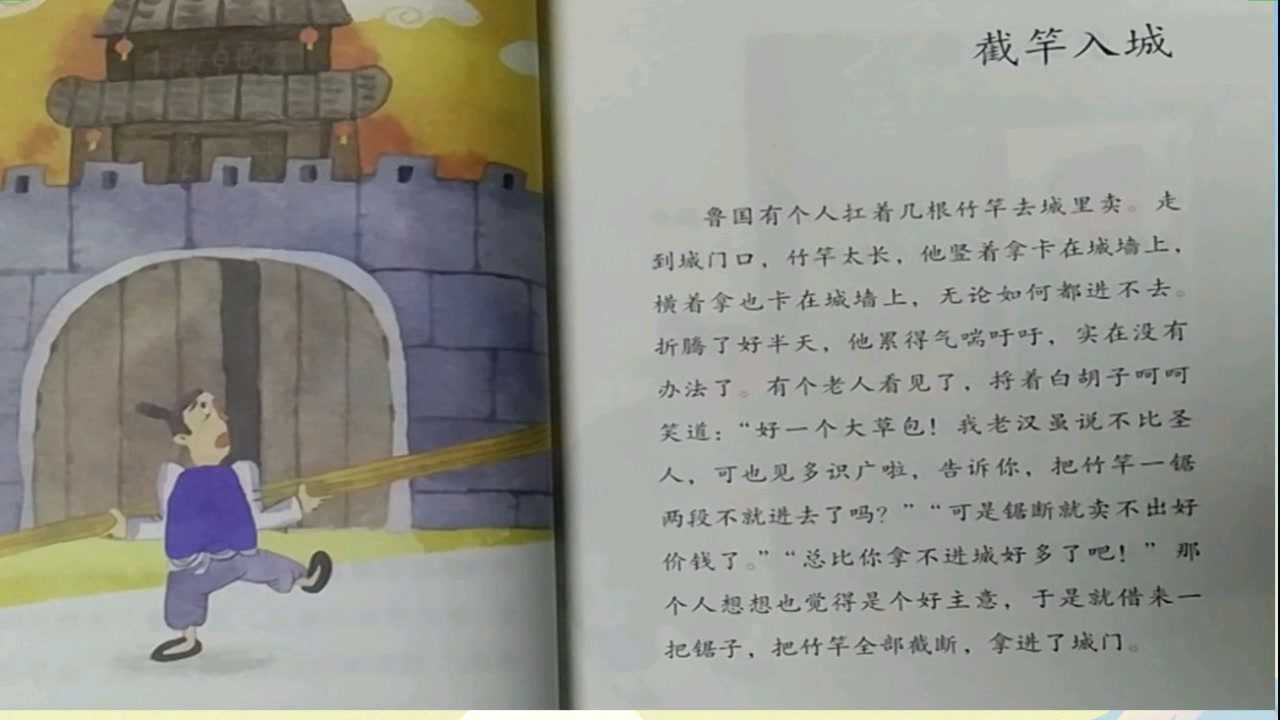 截竿入城
鲁国有个人扛着几根竹竿去城里卖。走
到城门口，竹竿太长，他竖着拿卡在城墙上，
横着拿也卡在城墙上，无论如何都进不去。
折腾了好半天，他累得气喘吁吁，实在没有
办法了。有个老人看见了，捋着白胡子呵呵
笑道：“好一个大草包！我老汉虽说不比圣
人，可也见多识广啦，告诉你，把竹竿一锯
两段不就进去了吗？”“可是锯断就卖不出好
价钱了。”“总比你拿不进城好多了吧！”那
个人想想也觉得是个好主意，于是就借来一
把锯子，把竹竿全部截断，拿进了城门。